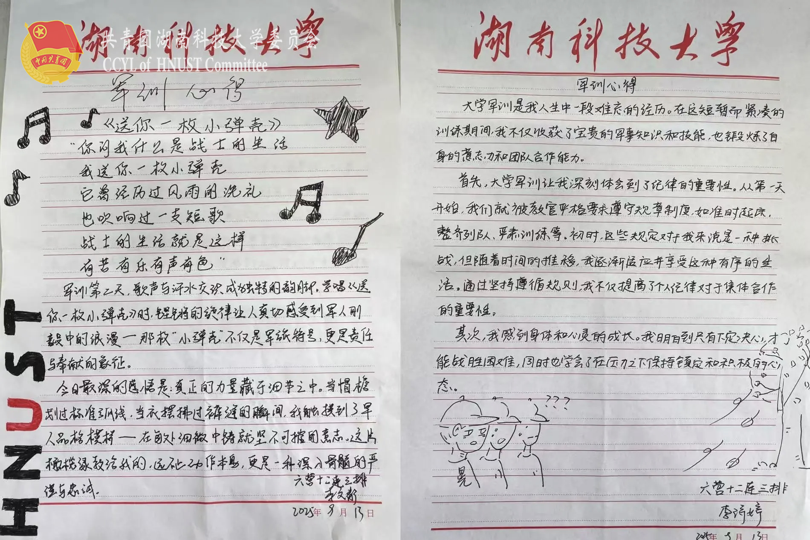 湖南科技大学
共青团湖南科技大学委员会
CCYL of HNUST Committee
军训心得
《送你一枚小弹壳》
"你问我什么是战士的生活
我送你一枚小弹壳
它曾经历过风雨的洗礼
也吹响过一支短歌
战士的生活就是这样
有苦有乐有声有色"
军训第二天,歌声与汗水交织成独特的韵脚。学唱《送
你一枚小弹壳》时,铿锵的旋律让人真切感受到军人刚
毅中的浪漫—那枚"小弹壳"不仅是军旅特号,更是责任
与奉献的象征。
今日最深的感悟是:真正的力量藏于细节之中。当帽檐
划过标准弧线,当衣摆拂过裤缝的瞬间,我触摸到了军
人品格模样——在每个细微中铸就坚不可摧的意志。这片
橄榄绿教给我的,远不止动作本身,更是一种深入骨髓的严
谨与忠诚。
六营十二连三排
2025年9月13日
HNUST
湖南科技大学
军训心得
大学军训是我人生中一段难忘的经历。在这短暂而紧凑的
训练期间,我不仅收获了宝贵的军事知识和技能,也锻炼了自
身的意志力和团队合作能力。
首先,大学军训让我深刻体会到了纪律的重要性。从第一天
开始,我们就被教官严格要求遵守规章制度,如准时起床,
整齐列队,严肃训练等。初时,这些规定对于我来说是一种挑
战,但随着时间的推移,我逐渐适应并享受这种有序的生
活。通过坚持遵循规则,我不仅提高了个人纪律对于集体合作
的重要性。
其次,我感到身体和心灵的成长。我明白到只有下定决心,才
能战胜困难,同时也学会了在压力之下保持镇定和积极的心
态。
???
晃
六营十二连三排
李诗婷
2025年9月13日